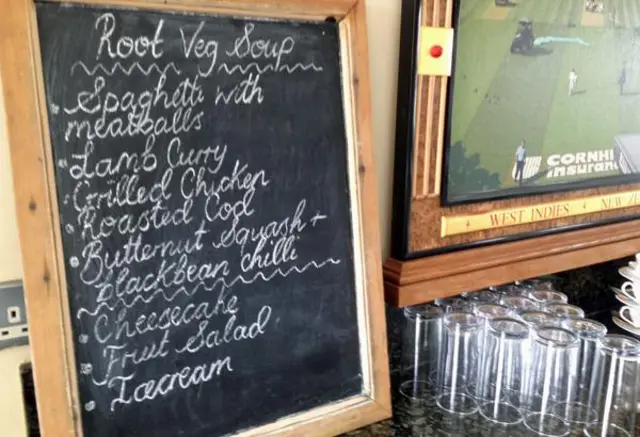 Root Veg Soup
Spaghetti with
meatballs
Lamb Curry
Grilled Chicken
Roasted Cod
Butternut Squash +
blackbean chilli
Cheesecake
Fruit Salad
Icecream
CORNH
Insuran
WEST INDIES
NEW